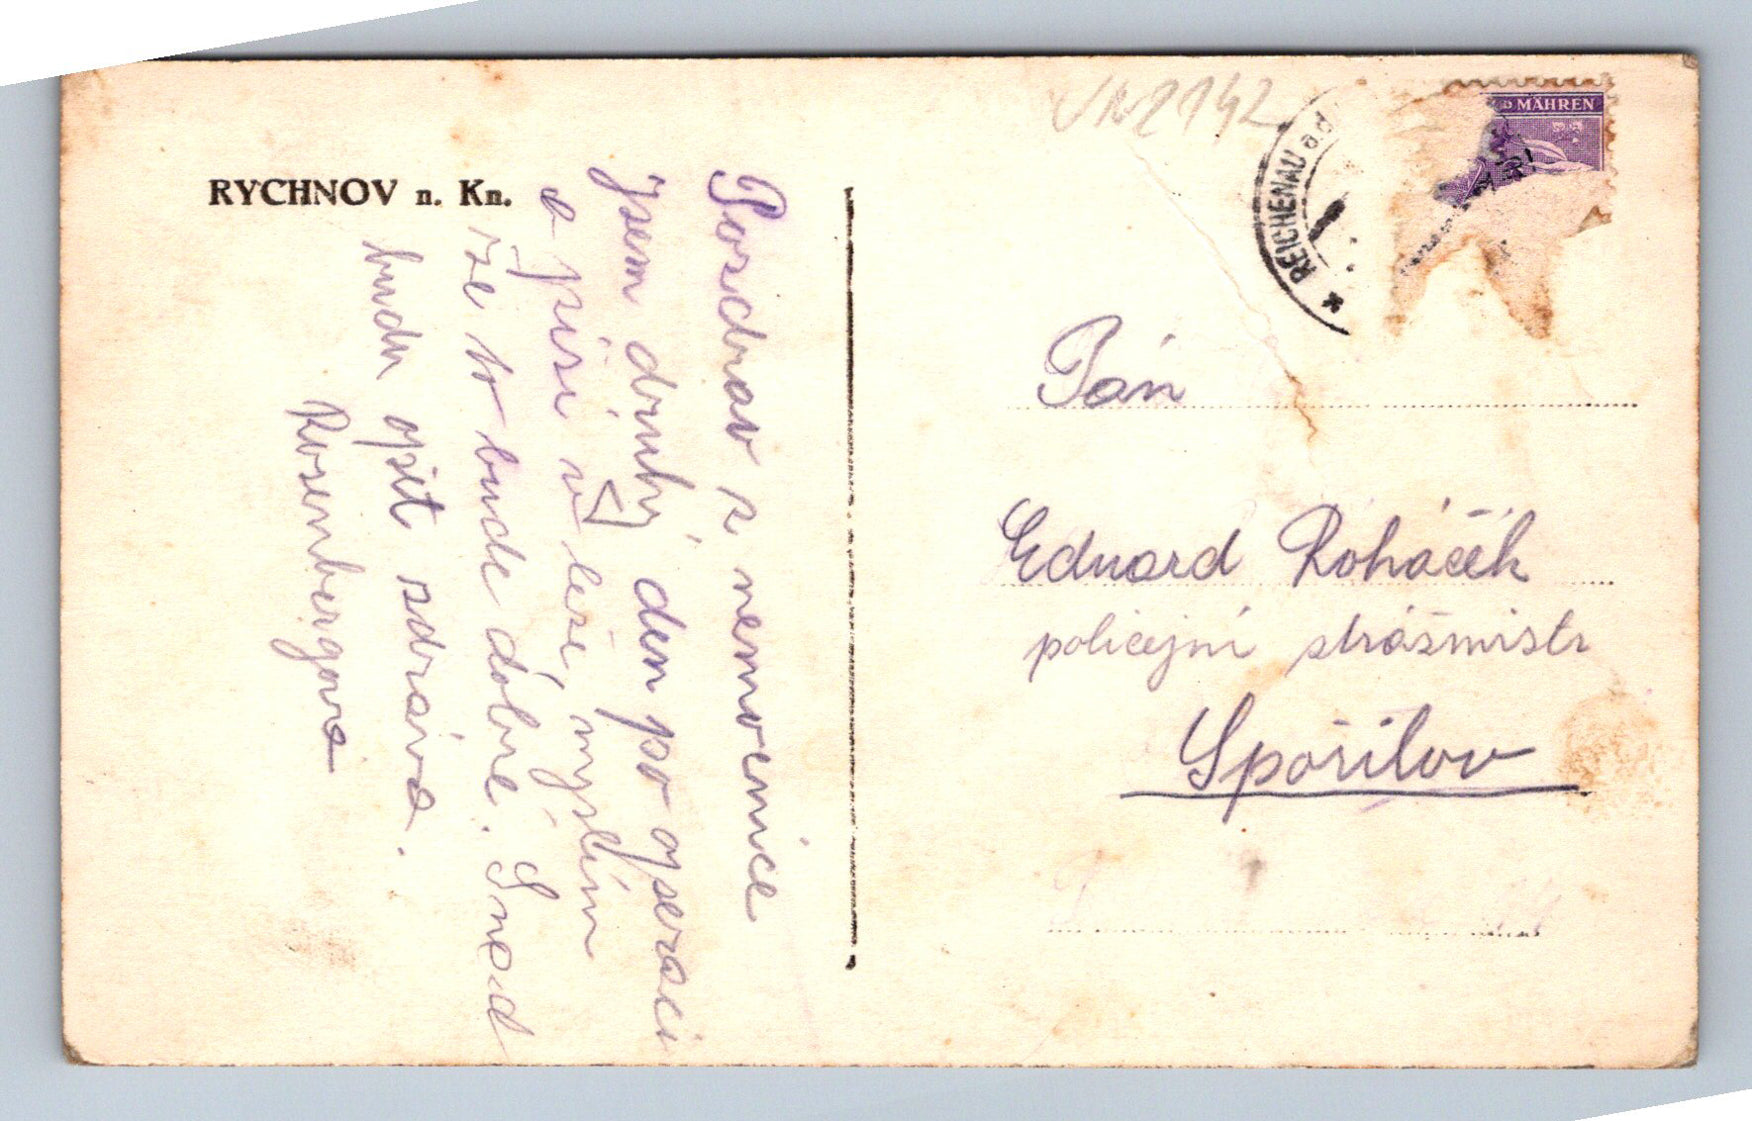 RYCHNOV n. Kn.
Pozdrav z nemocnice
jsem druhý den po operaci
a píši v leže, myslím
že to bude dobré. Snad
budu opět zdráva.
Rosenbergova
VN2142
REICHENAU a.d.
D MÄHREN
Pán
Eduard Roháček
policejní strážmistr
Spořilov